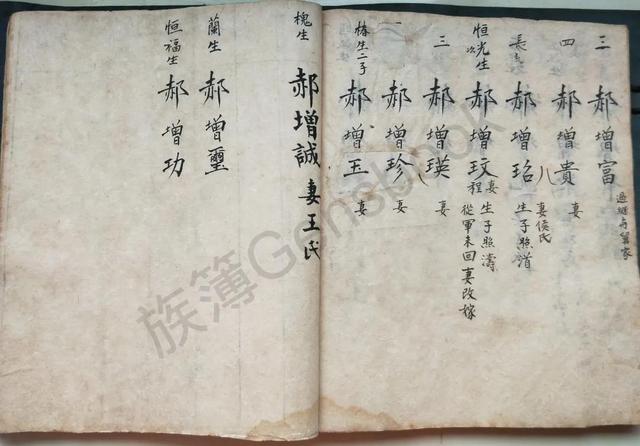 三 郝增富 過繼與翼家
四 郝增貴 妻
長 郝增玿 妻侯氏 生子照清
恒光生 次 郝增玟 妻程 生子照濤 從軍未回 妻改嫁
三 郝增瑛 妻
一 郝增珍 妻
椿生二子 郝增玉 妻
槐生 郝增誠 妻王氏
蘭生 郝增璽
恒福生 郝增功
族簿Gensbook